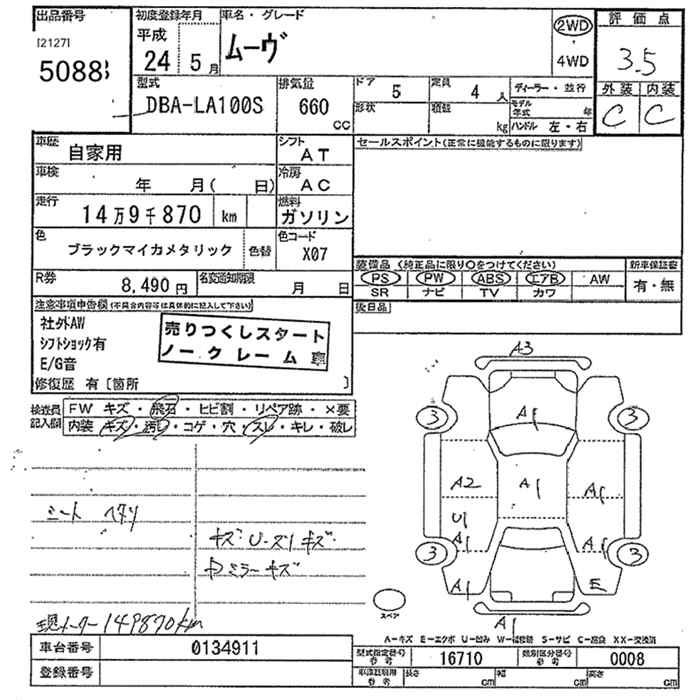 出品番号
[2127]
5088
初度登録年月
平成
24 5月
車名・グレード
ムーヴ
2WD
4WD
評価点
3.5
外装 内装
C C
型式
DBA-LA100S
排気量
660
CC
ドア 5
定員 4人
形状
積載 kg
ディーラー・並行
モデル年式 年
ハンドル 左・右
車歴
自家用
シフト
AT
セールスポイント(正常に機能するものに限ります)
車検
年 月( 日)
冷房
AC
走行
14万9千870 km
燃料
ガソリン
色
ブラックマイカメタリック
色替
色コード
X07
装備品 (純正品に限り○をつけてください)
新車保証書
PS PW ABS エアB AW
SR ナビ TV カワ
有・無
R券
8,490円
名変通知期限
月 日
後日品
注意事項申告欄 (不具合内容等は具体的に記入して下さい)
社外AW
シフトショック有
E/G音
売りつくしスタート
ノークレーム
修復歴 有〔箇所 〕
検査員
記入欄
FW キズ・飛石・ヒビ割・リペア跡・×要
内装 キズ・汚レ・コゲ・穴・スレ・キレ・破レ
シート ヘタリ
キズ U・ズリキズ
ミラーキズ
現メーター 149870km
A3
A1
3 3
A2 A1 A1
U1
A1 A1
3 3
A1 E
A1
スペア
A-キズ E-エクボ U-凹み W-補修跡 S-サビ C-腐食 XX-交換済
車台番号
0134911
登録番号
型式指定番号
参考
16710
類別区分番号
参考
0008
長さ cm
幅 cm
高さ cm